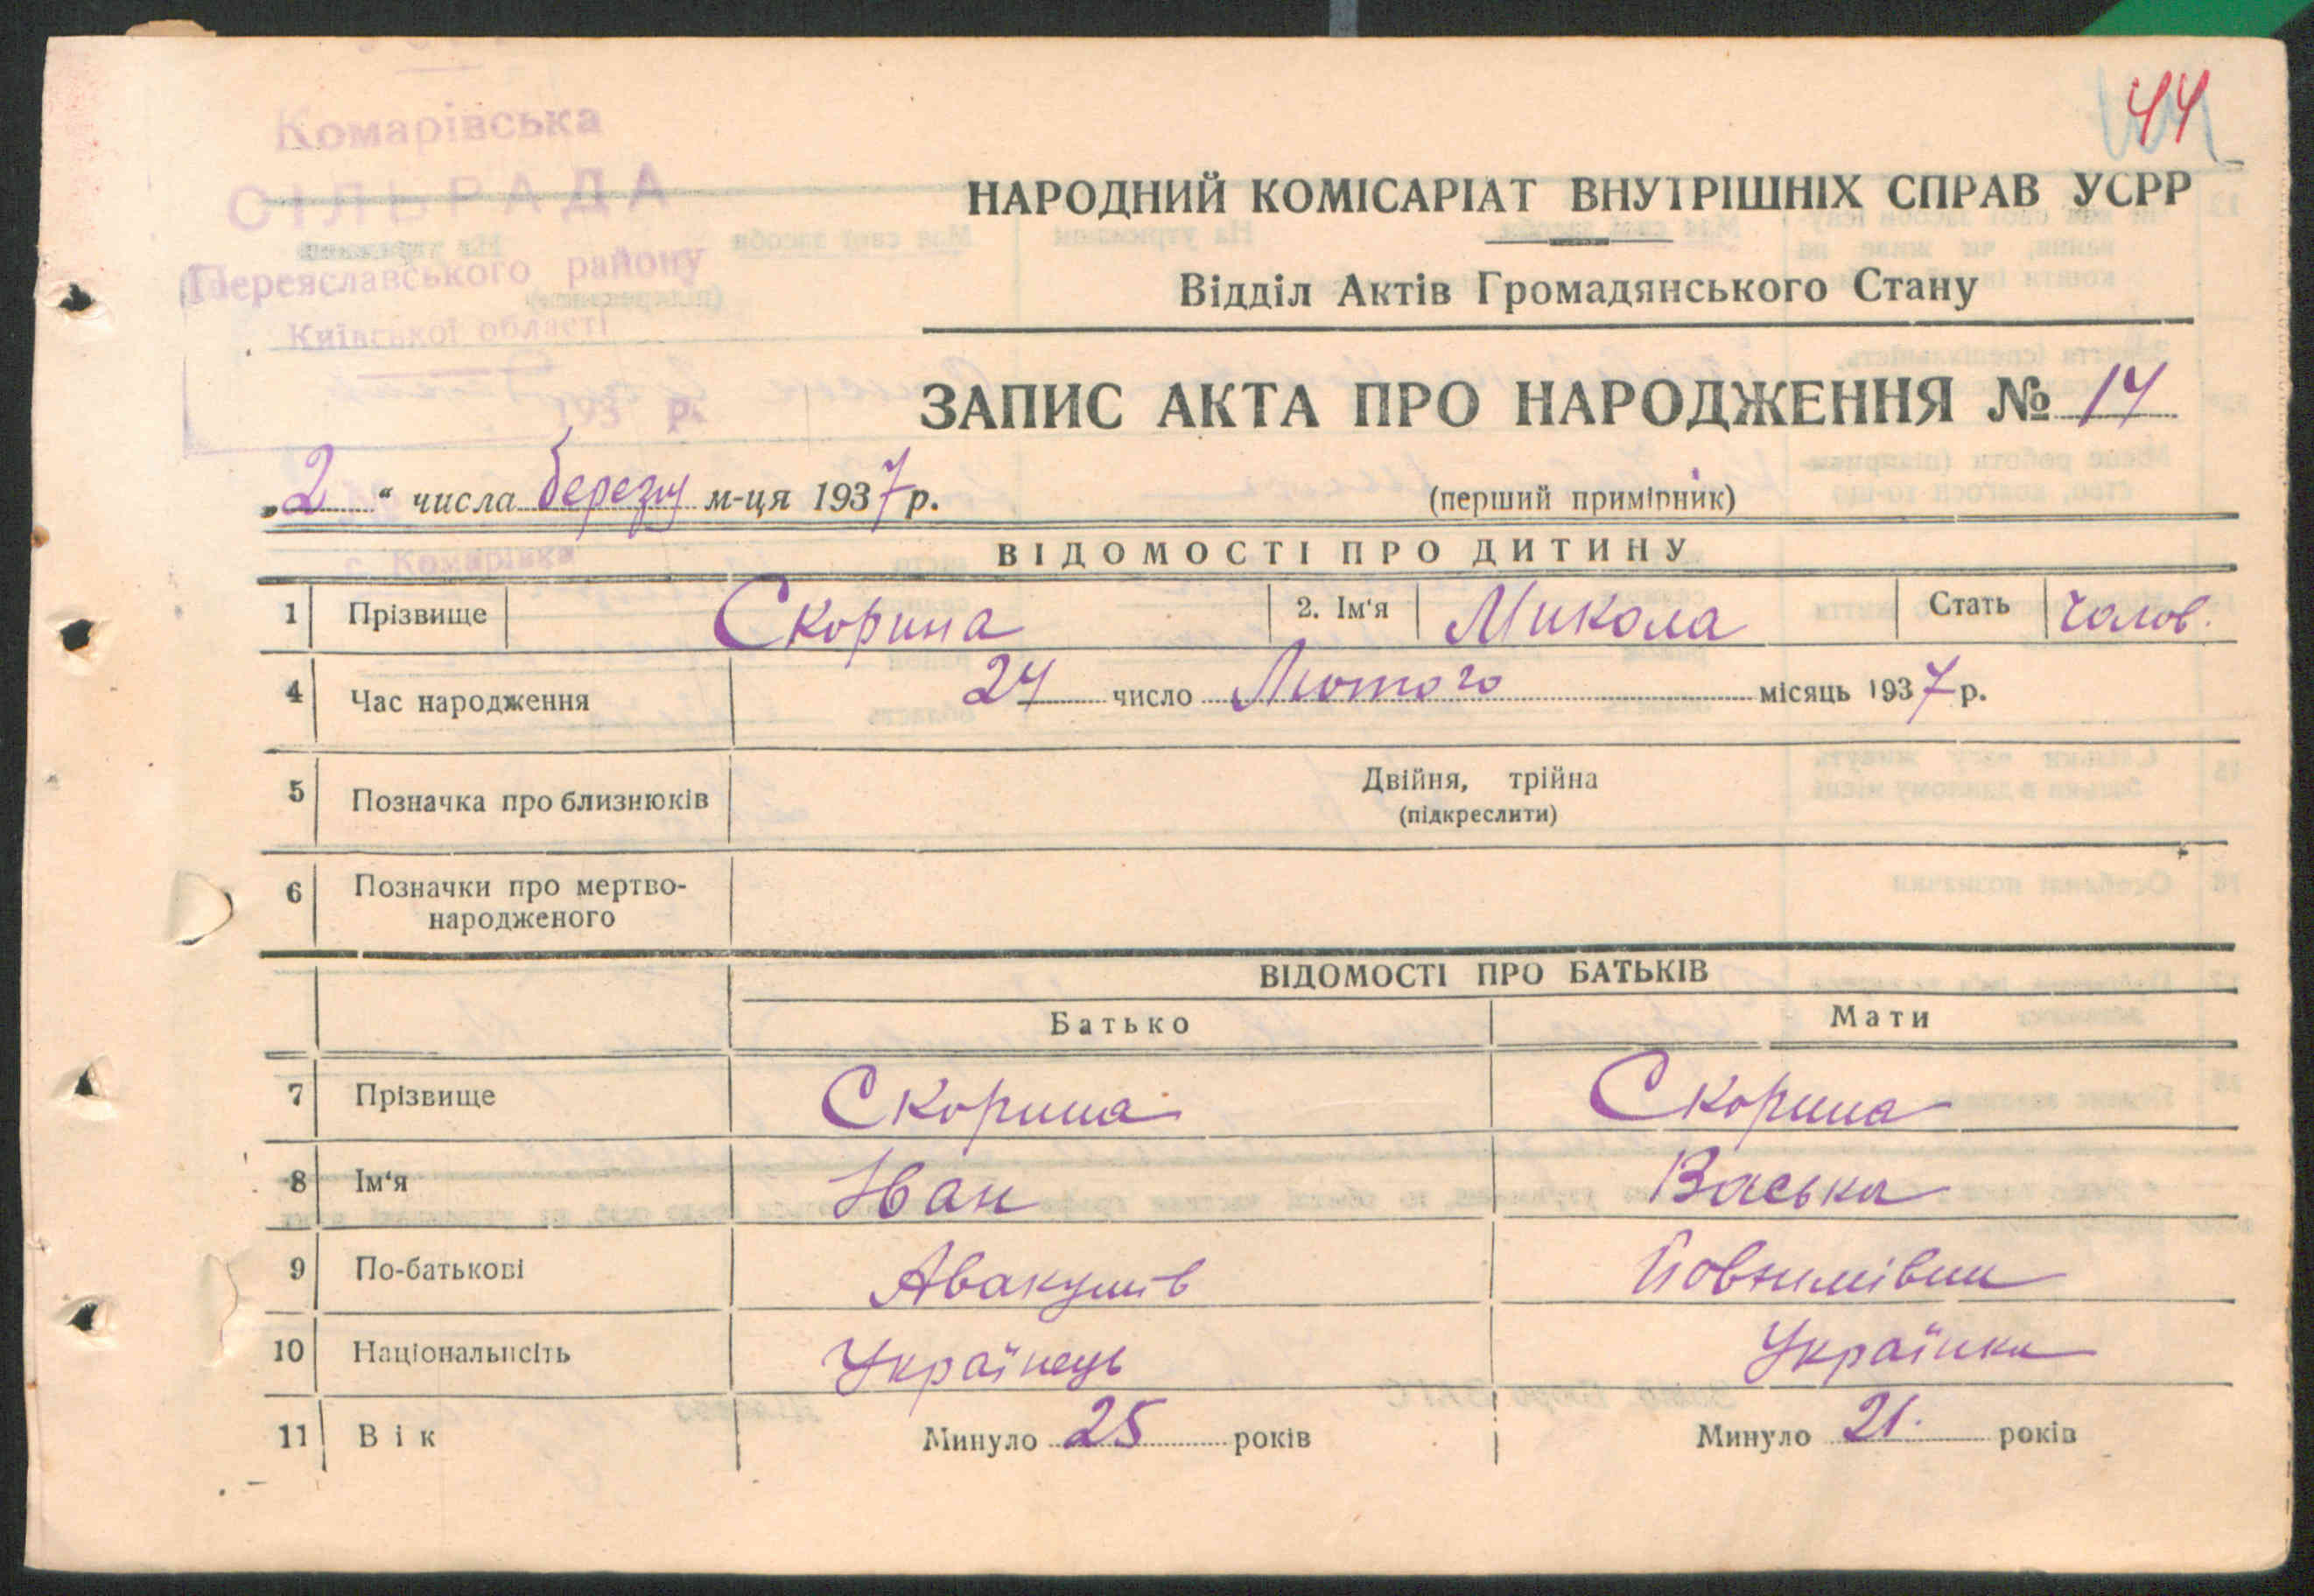 44
Комарівська
СІЛЬРАДА
Переяславського району
Київської області
193 р.
НАРОДНИЙ КОМІСАРІАТ ВНУТРІШНІХ СПРАВ УСРР
Відділ Актів Громадянського Стану
ЗАПИС АКТА ПРО НАРОДЖЕННЯ № 14
„2“ числа березня м-ця 1937 р.
(перший примірник)
с. Комарівка
ВІДОМОСТІ ПРО ДИТИНУ
1 Прізвище Скорина 2. Ім'я Микола Стать чолов.
4 Час народження 24 число Лютого місяць 1937 р.
5 Позначка про близнюків Двійня, трійна
(підкреслити)
6 Позначки про мертво-
народженого
ВІДОМОСТІ ПРО БАТЬКІВ
Батько Мати
7 Прізвище Скорина Скорина
8 Ім'я Іван Васька
9 По-батькові Авакумів
10 Національність Українець Українка
11 Вік Минуло 25 років Минуло 21. років